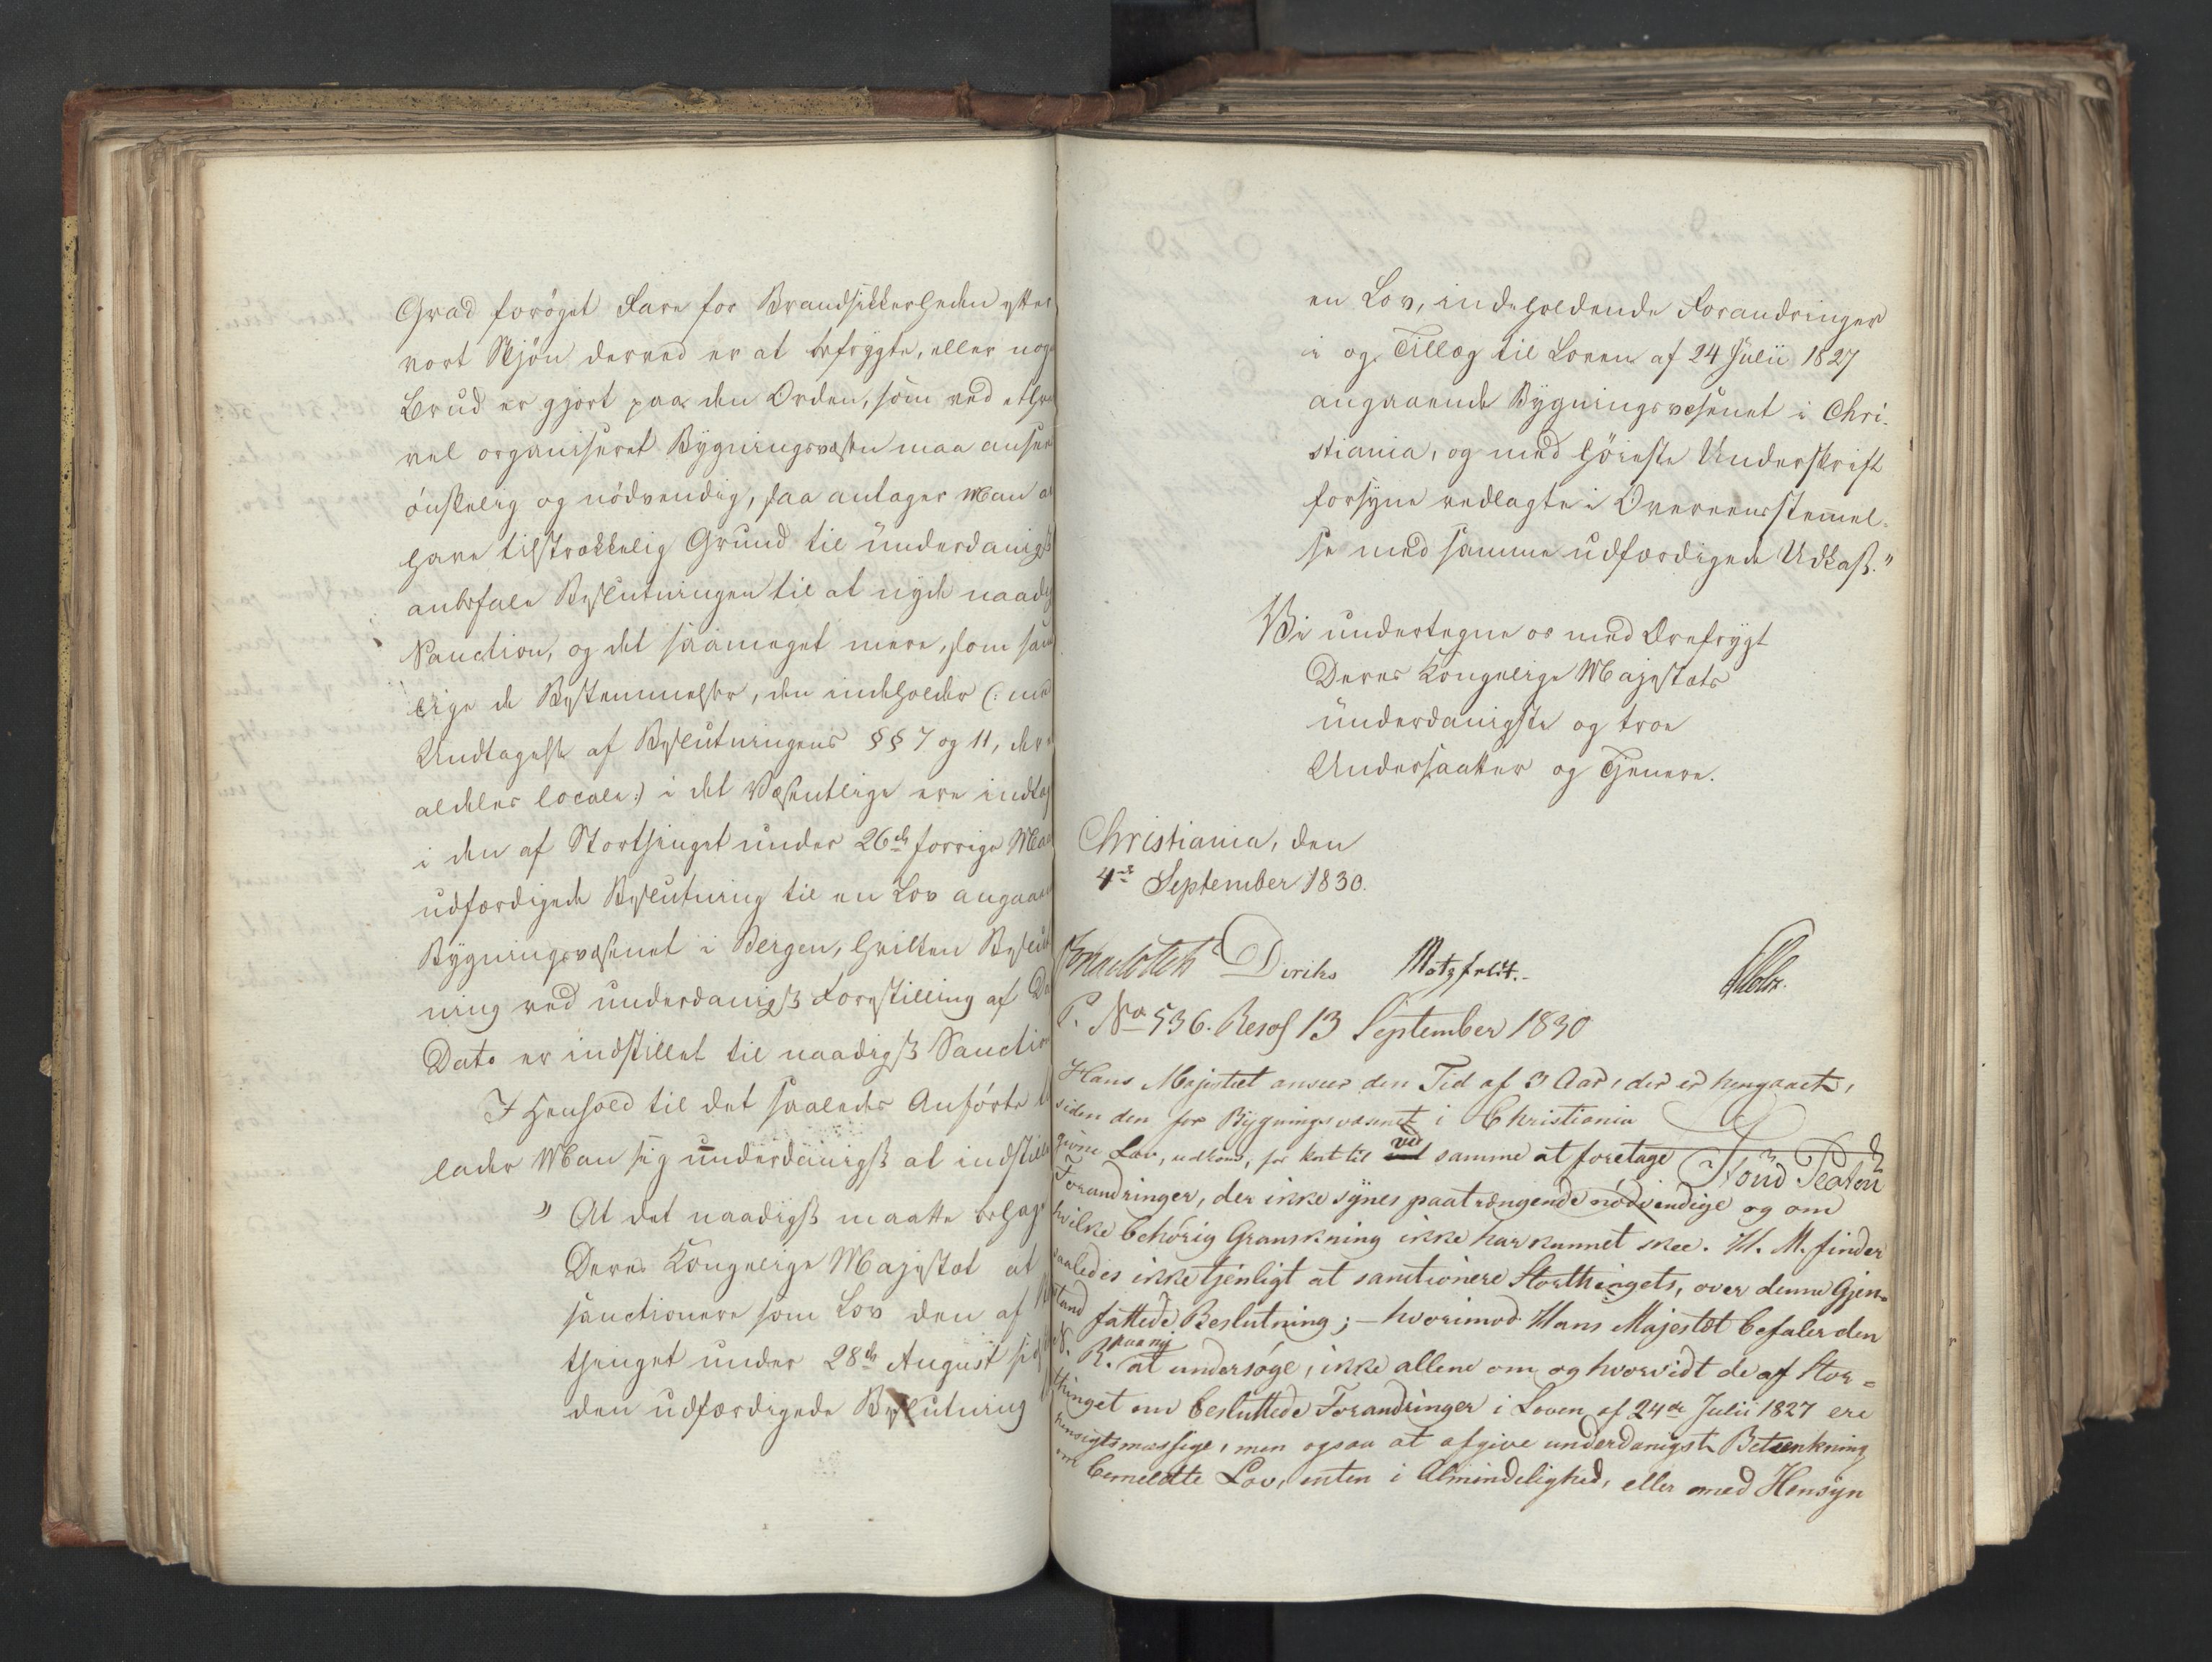 Grad forøget Fare for Brandsikkerheden efter
vort Skjøn derved er at befrygte, eller nog
Brud er gjort paa den Orden, som ved ethve
vel organiseret Bygningsvæsen maa ansees
ønskelig og nødvendig, saa antager Man at
have tilstrækkelig Grund til underdanigst
anbefale Beslutningen til at nyde naadig
Sanction, og det saameget mere, som sam
lige de Bestemmelser, den indeholder (: med
Undtagelse af Beslutningens §§ 7 og 11, der e
aldeles locale:) i det Væsentlige ere indtag
i den af Storthinget under 26de forrige Maa
udfærdigede Beslutning til en Lov angaaen
Bygningsvæsenet i Bergen, hvilken Beslut
ning ved underdanigst Forestilling af D
Dato er indstillet til naadigst Sanction
I Henhold til det saaledes Anførte
lader Man sig underdanigst at indstille
"At det naadigst maatte behage
Deres Kongelige Majestæt at
sanctionere som Lov den af
thinget under 28de August
den udfærdigede Beslutning
en Lov, indeholdende Forandringer
i og Tillæg til Loven af 24 Julii 1827
angaaende Bygningsvæsenet i Chri-
stiania, og med høieste Underskrift
forsyne vedlagte i Overeensstemmel-
se med samme udfærdigede Udkast."
Vi undertegne os med Ærefrygt
Deres Kongelige Majestæts
underdanigste og troe
Undersaatter og Tjenere.
Christiania, den
4de September 1830.
Diriks Motzfeldt. Holst.
P. No 536. Resol 13 September 1830
Hans Majestæt anseer den Tid af 3 Aar, der er hengaaet,
siden den for Bygningsvæsenet i Christiania
givne Lov, udkom, for kort til ved samme at foretage
Forandringer, der ikke synes paatrængende nødvendige og om
hvilke behørig Granskning ikke har kunnet skee. H. M. finder
saaledes ikke tjenligt at sanctionere Storthingets, over denne Gjen-
stand fattede Beslutning; - hvorimod Hans Majestæt befaler den
N. R. paa ny at undersøge, ikke allene om og hvorvidt de af Stor=
thinget om besluttede Forandringer i Loven af 24de Julii 1827 ere
hensigtsmæssige, men ogsaa at afgive underdanigste Betænkning
om bemeldte Lov, enten i Almindelighed, eller med Hensyn